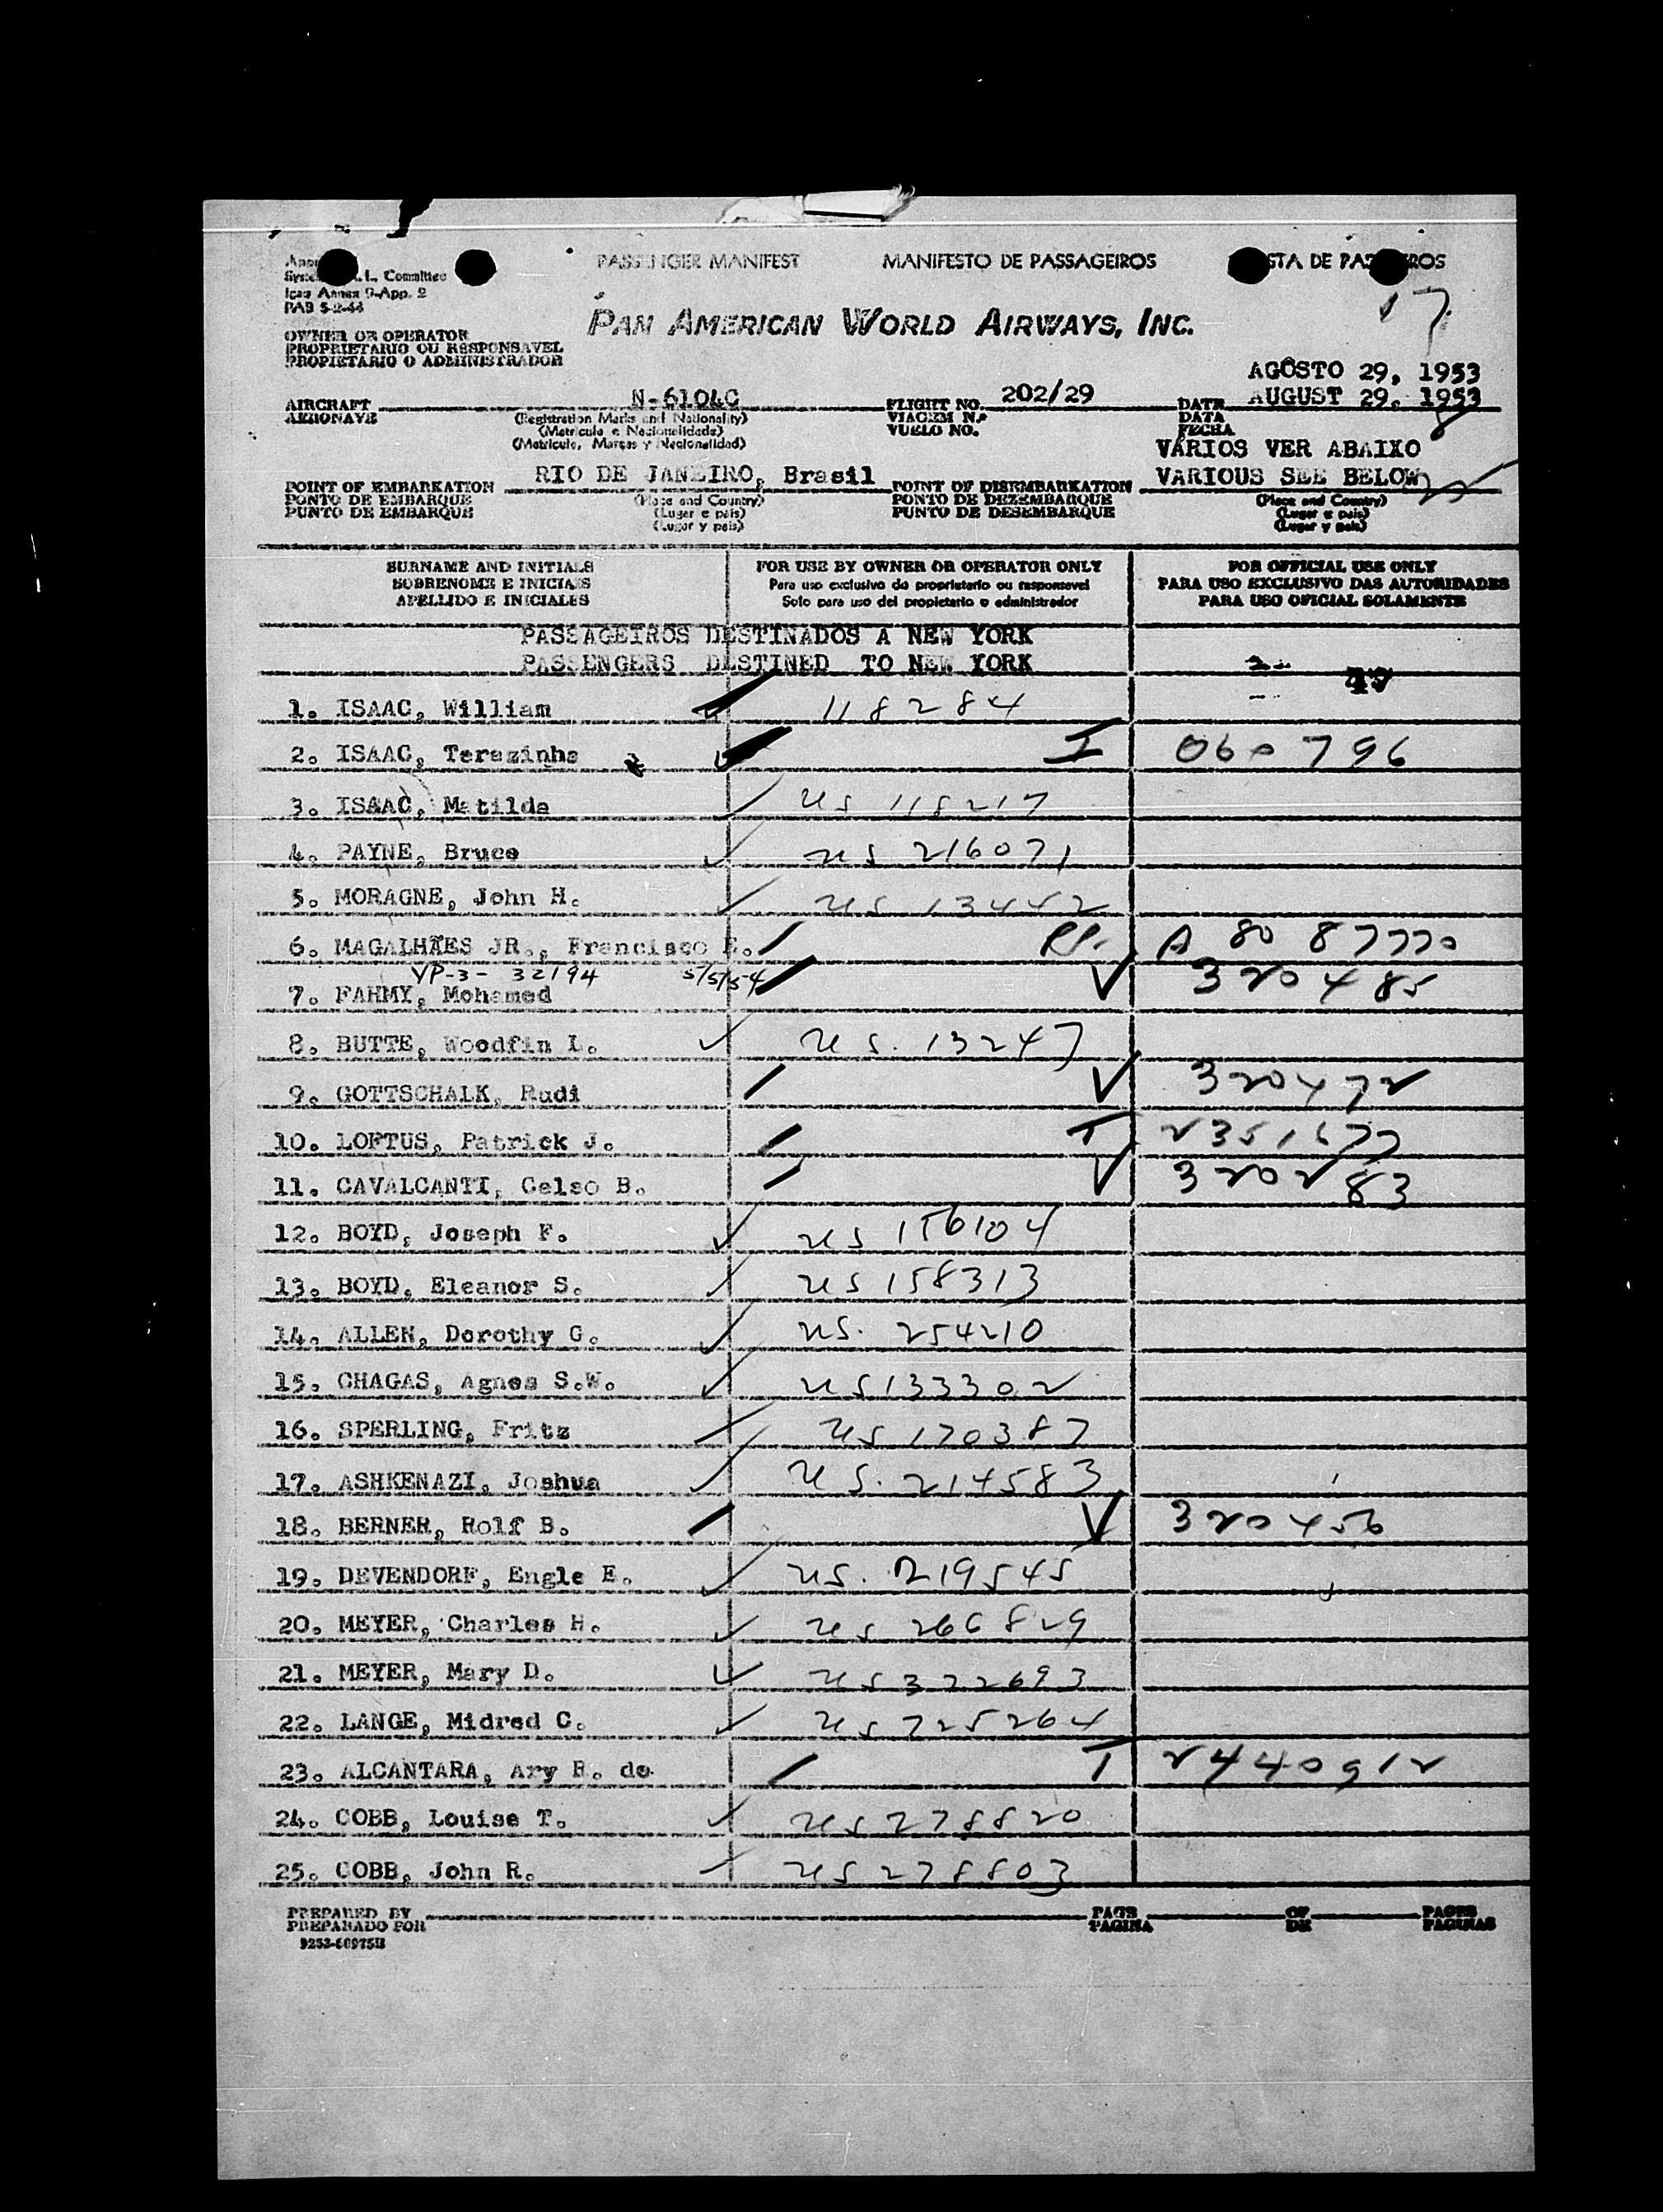 PASSENGER MANIFEST MANIFESTO DE PASSAGEIROS
I. Committee
Icao Annex 9-App. 2
PAB 5-2-44
17
PAN AMERICAN WORLD AIRWAYS, INC.
OWNER OR OPERATOR
PROPRIETARIO OU RESPONSAVEL
PROPIETARIO O ADMINISTRADOR
AGÔSTO 29, 1953
AIRCRAFT N-6104C FLIGHT NO. 202/29 DATE AUGUST 29, 1953
AERONAVE (Registration Marks and Nationality) VIAGEM N.º DATA
(Matricula e Nacionalidade) VUELO NO. FECHA
(Matricula, Marcas y Nacionalidad)
VARIOS VER ABAIXO
POINT OF EMBARKATION RIO DE JANEIRO, Brasil POINT OF DISEMBARKATION VARIOUS SEE BELOW
PONTO DE EMBARQUE (Place and Country) PONTO DE DEZEMBARQUE (Place and Country)
PUNTO DE EMBARQUE (Lugar e pais) PUNTO DE DESEMBARQUE (Lugar e pais)
(Lugar y pais) (Lugar y pais)
SURNAME AND INITIALS FOR USE BY OWNER OR OPERATOR ONLY FOR OFFICIAL USE ONLY
SOBRENOME E INICIAIS Para uso exclusivo do proprietario ou responsavel PARA USO EXCLUSIVO DAS AUTORIDADES
APELLIDO E INICIALES Solo para uso del propietario o administrador PARA USO OFICIAL SOLAMENTE
PASSAGEIROS DESTINADOS A NEW YORK
PASSENGERS DESTINED TO NEW YORK
1. ISAAC, William 118284
2. ISAAC, Terezinha I 060796
3. ISAAC, Matilde US 118217
4. PAYNE, Bruce US 216071
5. MORAGNE, John H. US 13442
6. MAGALHÃES JR., Francisco E. RP. A 80 87770
VP-3- 32194 5/5/54
7. FAHMY, Mohamed V 320485
8. BUTTE, Woodfin L. US. 13247
9. GOTTSCHALK, Rudi V 320472
10. LOFTUS, Patrick J. T 2351677
11. CAVALCANTI, Celso B. V 320283
12. BOYD, Joseph F. US 156104
13. BOYD, Eleanor S. US 158313
14. ALLEN, Dorothy G. US. 254210
15. CHAGAS, Agnes S.W. US 133302
16. SPERLING, Fritz US 120387
17. ASHKENAZI, Joshua US. 214583
18. BERNER, Rolf B. V 320456
19. DEVENDORF, Engle E. US. 219545
20. MEYER, Charles H. US 266829
21. MEYER, Mary D. US 322693
22. LANGE, Midred C. US 225264
23. ALCANTARA, Ary B. de T 2440912
24. COBB, Louise T. US 278820
25. COBB, John R. US 278803
PREPARED BY PAGE OF PAGES
PREPARADO POR PAGINA DE PAGINAS